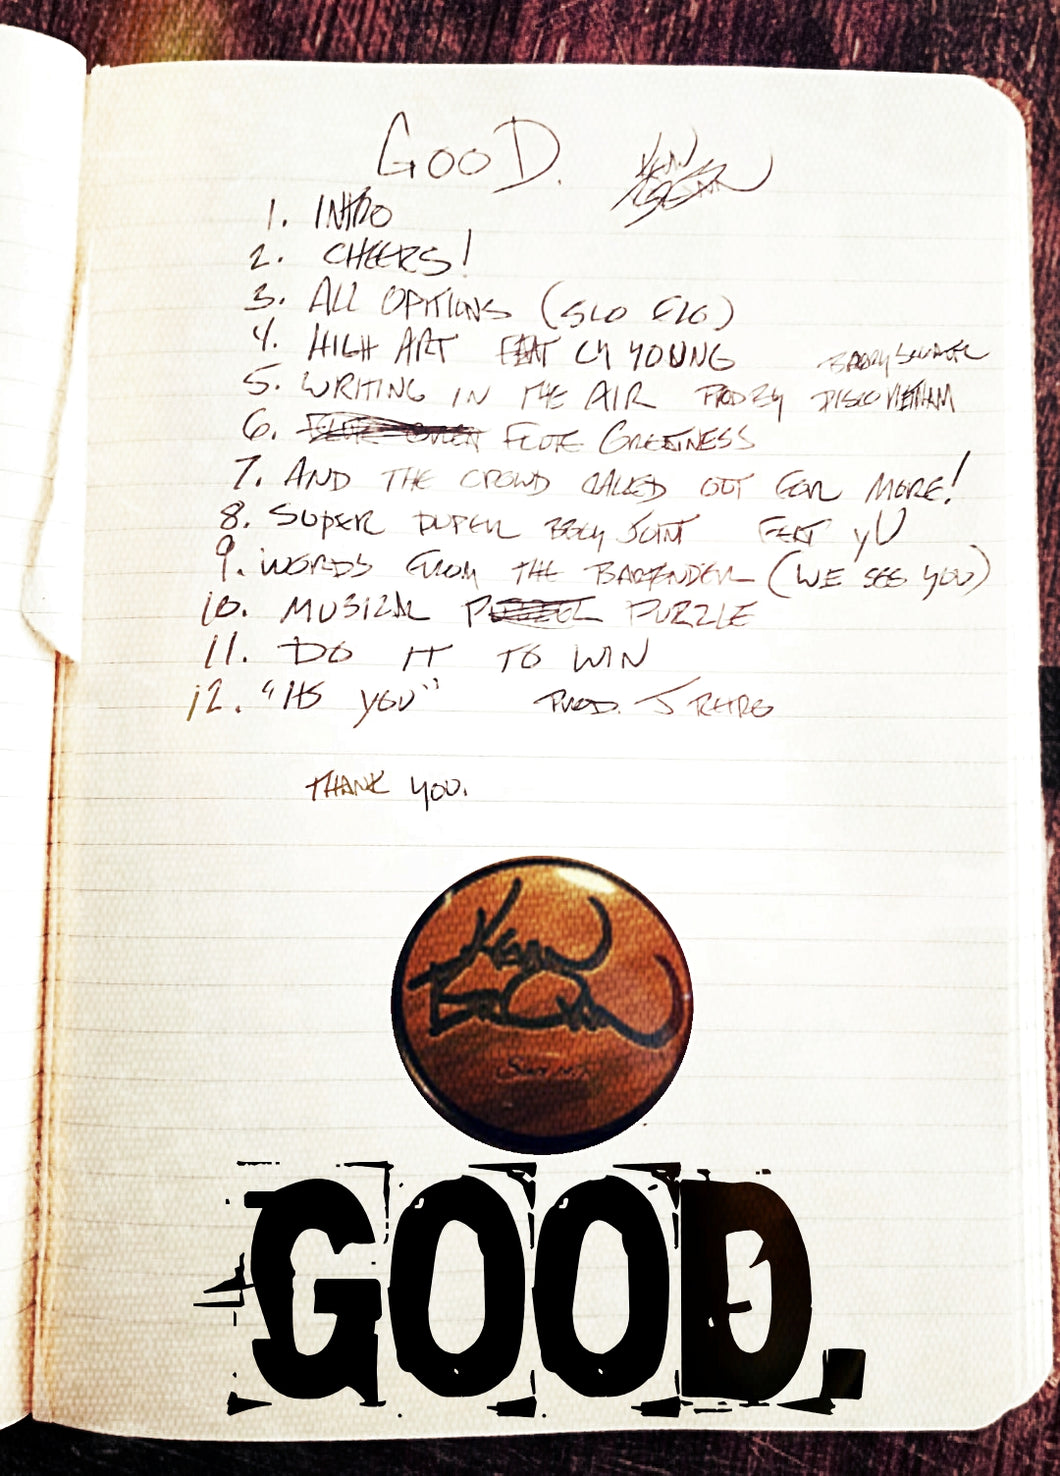 GOOD. KEN BROWN
1. INTRO
2. CHEERS!
3. ALL OPTIONS (SLO FLO)
4. HIGH ART FEAT CY YOUNG
5. WRITING IN THE AIR PROD BY DISCO VIETNAM
6. FLUTE GREATNESS
7. AND THE CROWD CALLED OUT FOR MORE!
8. SUPER DUPER BBQ JOINT FEAT yU
9. WORDS FROM THE BARTENDER (WE SEE YOU)
10. MUSICAL PUZZLE
11. DO IT TO WIN
12. "ITS YOU" PROD. J RHRO
THANK YOU.
KEN
BROWN
GOOD.